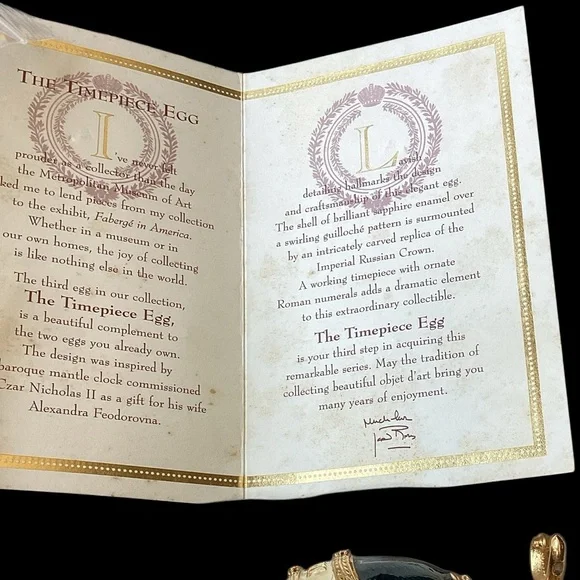 THE TIMEPIECE EGG
I've never felt
prouder as a collector than the day
the Metropolitan Museum of Art
ked me to lend pieces from my collection
to the exhibit, Fabergé in America.
Whether in a museum or in
our own homes, the joy of collecting
is like nothing else in the world.
The third egg in our collection,
The Timepiece Egg,
is a beautiful complement to
the two eggs you already own.
The design was inspired by
baroque mantle clock commissioned
Czar Nicholas II as a gift for his wife
Alexandra Feodorovna.
Lavish
detailing hallmarks the design
and craftsmanship of this elegant egg.
The shell of brilliant sapphire enamel over
a swirling guilloché pattern is surmounted
by an intricately carved replica of the
Imperial Russian Crown.
A working timepiece with ornate
Roman numerals adds a dramatic element
to this extraordinary collectible.
The Timepiece Egg
is your third step in acquiring this
remarkable series. May the tradition of
collecting beautiful objet d'art bring you
many years of enjoyment.
Much love
Joan Rivers